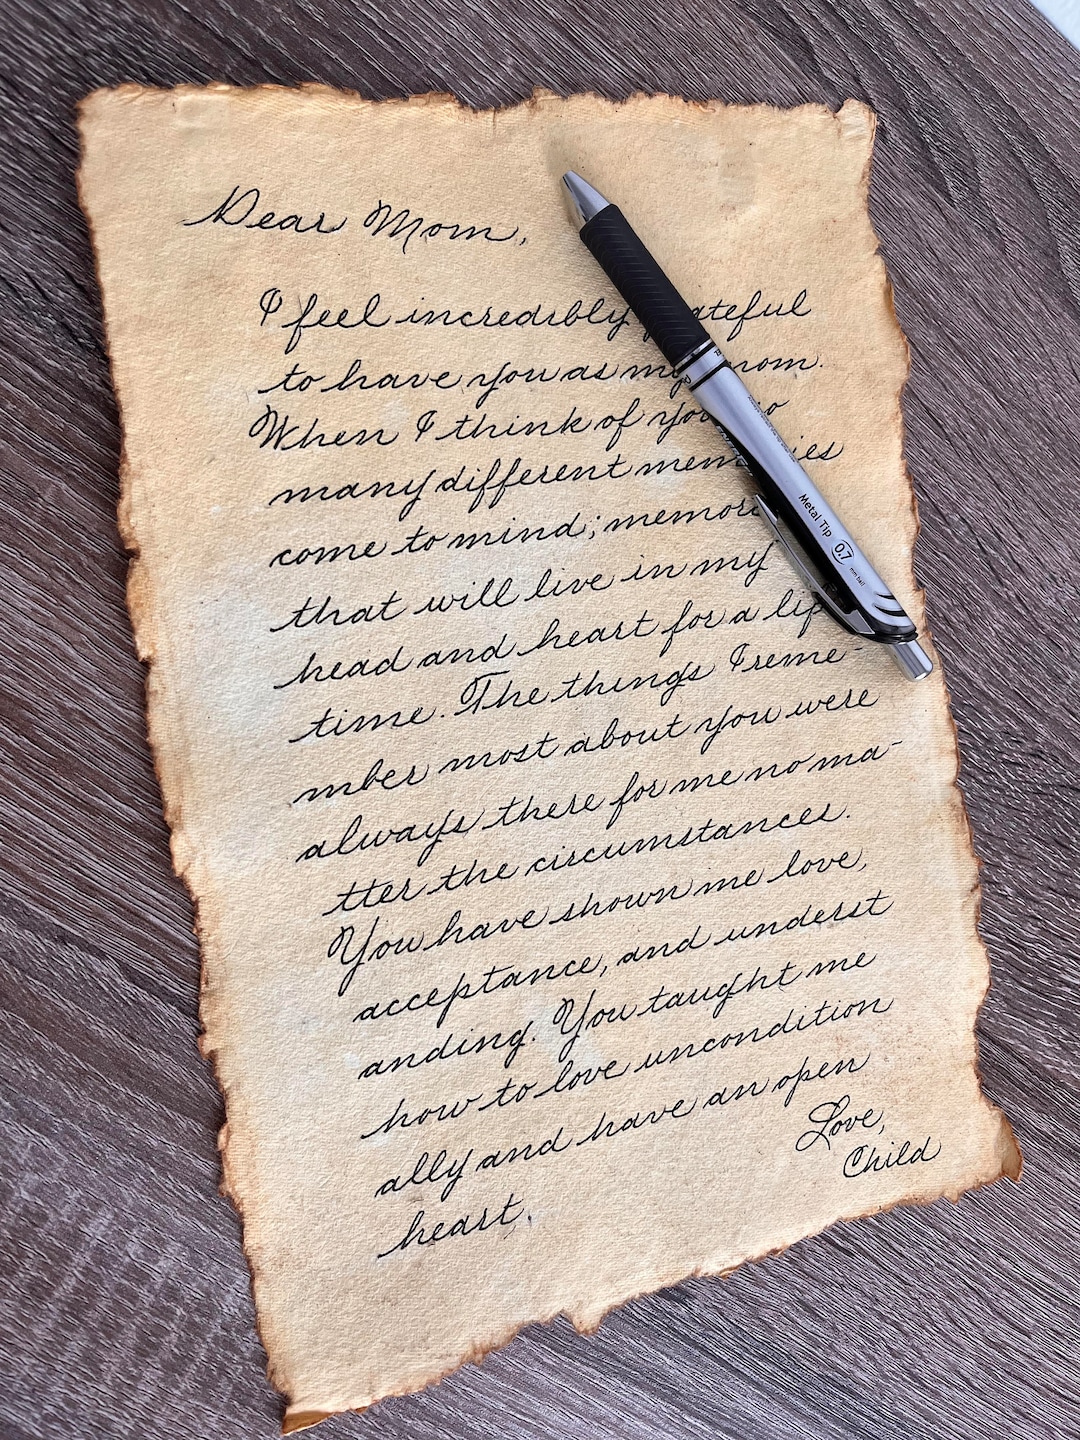 Dear Mom,
I feel incredibly grateful
to have you as my mom.
When I think of you so
many different memories
come to mind; memor
that will live in my
head and heart for a
time. The things I reme-
mber most about you were
always there for me no ma-
tter the circumstances.
You have shown me love,
acceptance, and underst
anding. You taught me
how to love uncondition
ally and have an open
heart.
Love,
Child
Metal Tip 0.7 mm ball